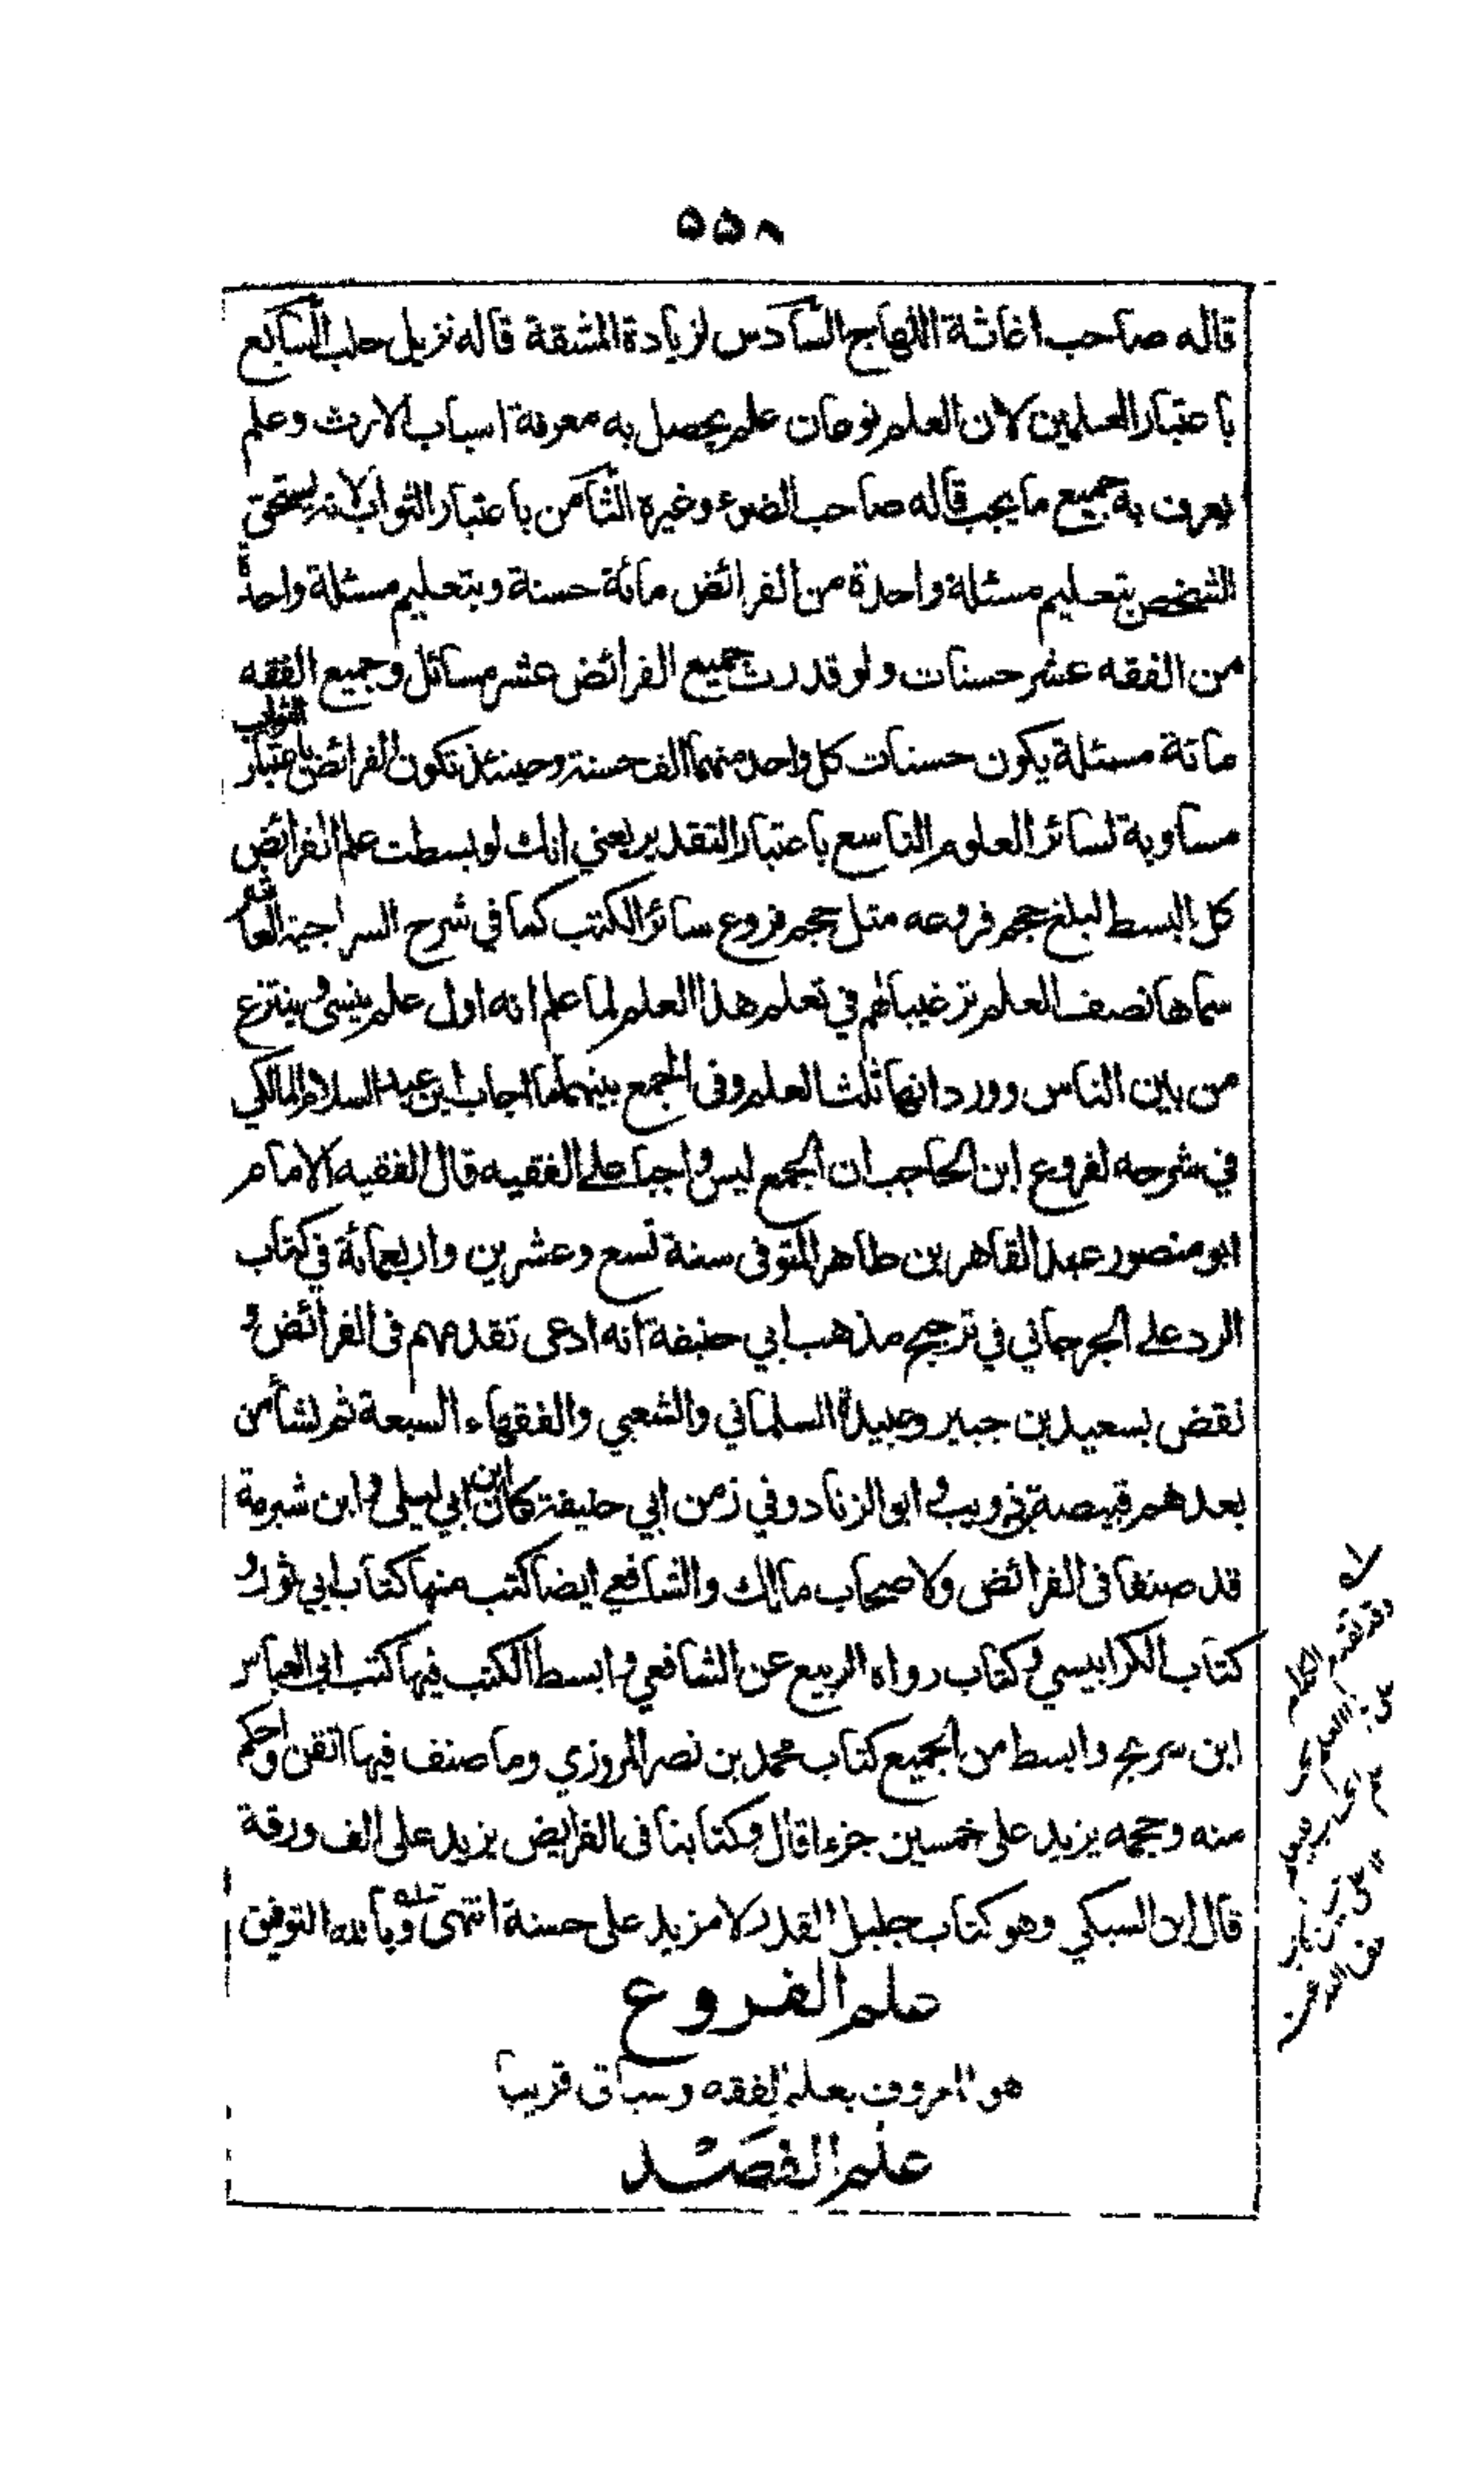 ٥٥٨
قاله صاحب اغاثة اللهاج السادس لزيادة المشقة قاله نزيل حلب السابع
باعتبار العلمين لان العلم نوعان علم يحصل به معرفة اسباب الارث وعلم
يعرف به جميع ما يجب قاله صاحب الضوء وغيره الثامن باعتبار الثواب لانه يستحق
الشخص بتعليم مسئلة واحدة من الفرائض مائة حسنة وبتعليم مسئلة واحدة
من الفقه عشر حسنات ولو قدرت جميع الفرائض عشر مسائل وجميع الفقه
مائة مسئلة يكون حسنات كل واحد منهما الف حسنة وحينئذ تكون الفرائض باعتبار الثواب
مساوية لسائر العلوم التاسع باعتبار التقدير يعني انك لو بسطت علم الفرائض
كل البسط لبلغ حجم فروعه مثل حجم فروع سائر الكتب كما في شرح السراجية العاشر
سماها نصف العلم ترغيبا لهم في تعلم هذا العلم لما علم انه اول علم ينسى وينتزع
من بين الناس وورد انها ثلث العلم وفى الجمع بينهما اجاب ابن عبد السلام المالكي
في شرحه لفروع ابن الحاجب ان الجمع ليس واجبا على الفقيه قال الفقيه الامام
ابو منصور عبد القاهر بن طاهر المتوفى سنة تسع وعشرين واربعمائة في كتاب
الرد على الجرجاني في ترجيح مذهب ابي حنيفة انه ادعى تقدمهم فى الفرائض و
نقض بسعيد بن جبير وعبيدة السلماني والشعبي والفقهاء السبعة ثم نشأ من
بعدهم قبيصة بن ذويب وابو الزناد وفي زمن ابي حنيفة كان ابن ابي ليلى وابن شبرمة
قد صنفا فى الفرائض ولاصحاب مالك والشافعي ايضا كتب منها كتاب ابي ثور و
كتاب الكرابيسي وكتاب رواه الربيع عن الشافعي وابسط الكتب فيها كتب ابى العباس
ابن سريج وابسط من الجميع كتاب محمد بن نصر المروزي وما صنف فيها اتقن واحكم
منه وحجمه يزيد على خمسين جزءا قال وكتابنا فى الفرايض يزيد على الف ورقة
قال ابن السبكي وهو كتاب جليل القدر لا مزيد على حسنة انتهى وبالله التوفيق
علم الفروع
هو المعروف بعلم الفقه وسيأتى قريبا
علم الفصد